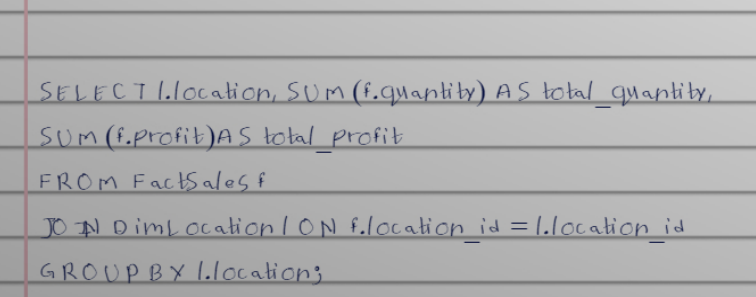 SELECT l.location, SUM (f.quantity) AS total_quantity,
SUM (f.profit) AS total_profit
FROM FactSales f
JOIN DimLocation l ON f.location_id = l.location_id
GROUP BY l.location;